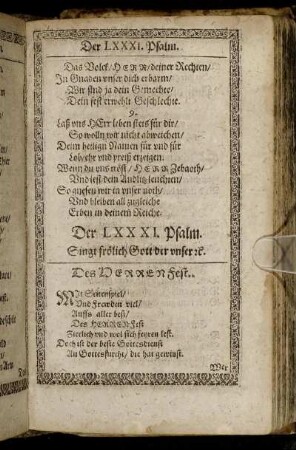 Der LXXXI. Psalm.
Das Volck/ HERR/ deiner Rechten/
In Gnaden vnser dich erbarm/
Wir sind ja dein Gemechte/
Dein fest erwehlt Geschlechte.
9.
Laß vns HErr leben stets für dir/
So wolln wir nicht abweichen/
Deim heilign Namen für vnd für
Lob/ehr vnd preiß erzeigen.
Wenn du vns tröst/ HERR Zebaoth/
Vnd lest dein Andlitz leuchten/
So gnesen wir in vnser noth/
Vnd bleiben all zugleiche
Erben in deinem Reiche.
Der LXXXI. Psalm.
Singt frölich Gott der vnser ꝛc.
Des HERREN Fest.
MIt Seitenspiel/
Vnd Frewden viel/
Auffs aller best/
Des HERREN Fest
Zierlich vnd wol sich feyren lest.
Doch ist der beste Gottesdienst
An Gottesfurcht/ die hat gewinst.
Wer